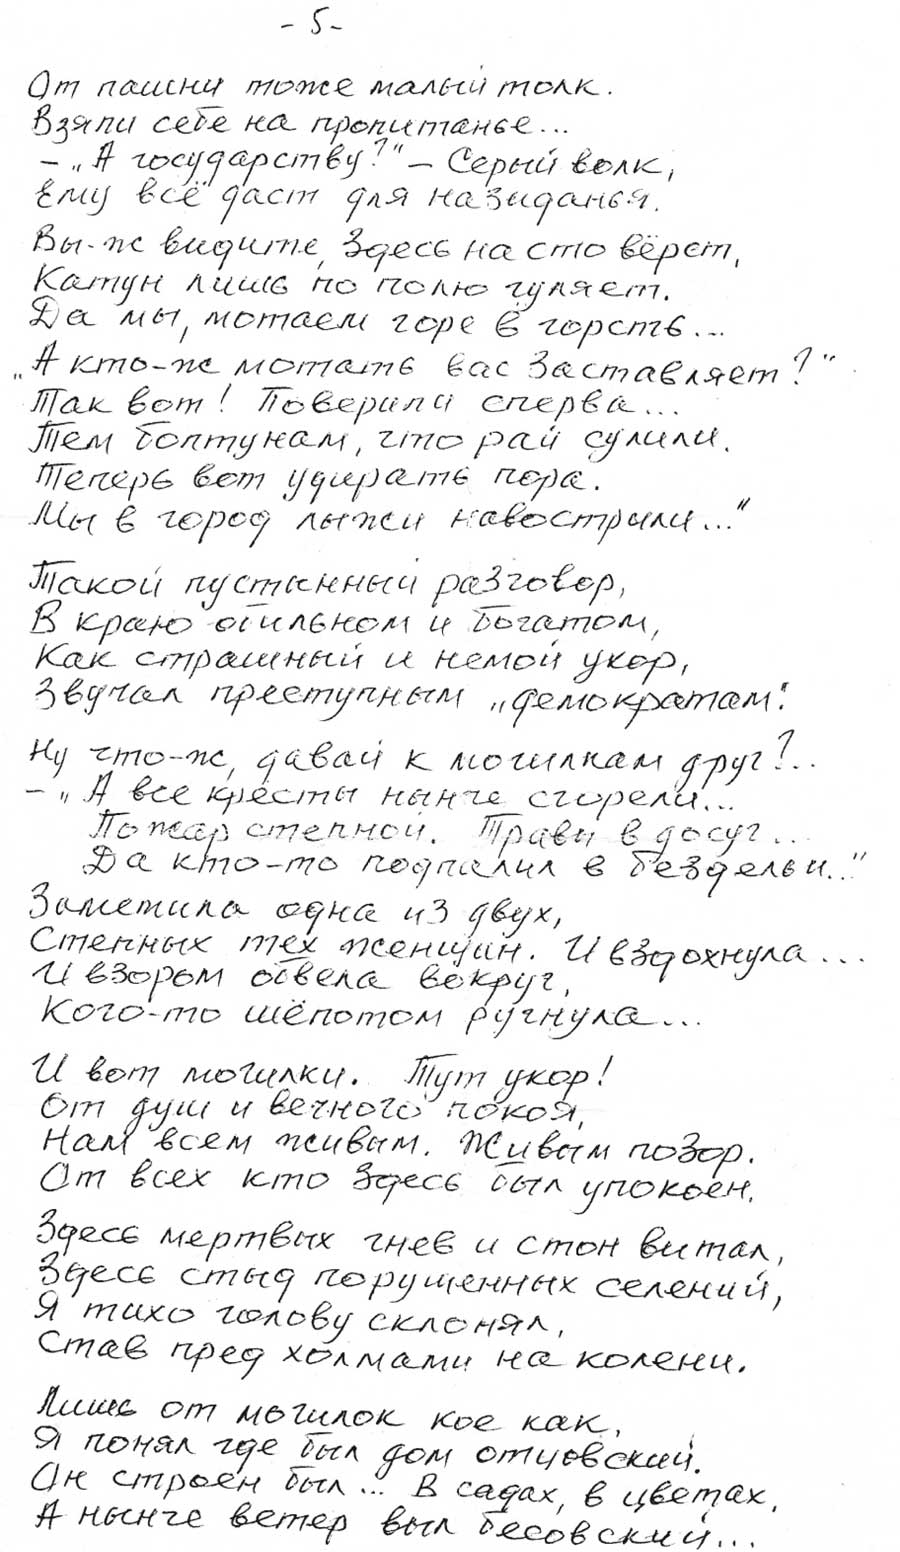 - 5 -
От пашни тоже малый толк.
Взяли себе на пропитанье...
- „А государству?" - Серый волк,
Ему всё даст для назиданья.
Вы-ж видите, здесь на сто вёрст,
Катун лишь по полю гуляет.
Да мы, мотаем горе в горсть...
„А кто-ж мотать вас заставляет?"
Так вот! Поверили сперва...
Тем болтунам, что рай сулили.
Теперь вот удирать пора.
Мы в город лыжи навострили..."
Такой пустынный разговор,
В краю обильном и богатом,
Как страшный и немой укор,
Звучал преступным „демократам".
Ну что-ж, давай к могилкам друг?..
- „А все кресты нынче сгорели...
Пожар степной. Травы в досуг...
Да кто-то подпалил в бездельи..."
Заметила одна из двух,
Степных тех женщин. И вздохнула...
И взором обвела вокруг,
Кого-то шёпотом ругнула...
И вот могилки. Тут укор!
От душ и вечного покоя,
Нам всем живым. Живым позор.
От всех кто здесь был упокоен.
Здесь мертвых гнев и стон витал,
Здесь стыд порушенных селений,
Я тихо голову склонял,
Став пред холмами на колени.
Лишь от могилок кое как,
Я понял где был дом отцовский.
Он строен был... В садах, в цветах,
А нынче ветер выл бесовский...